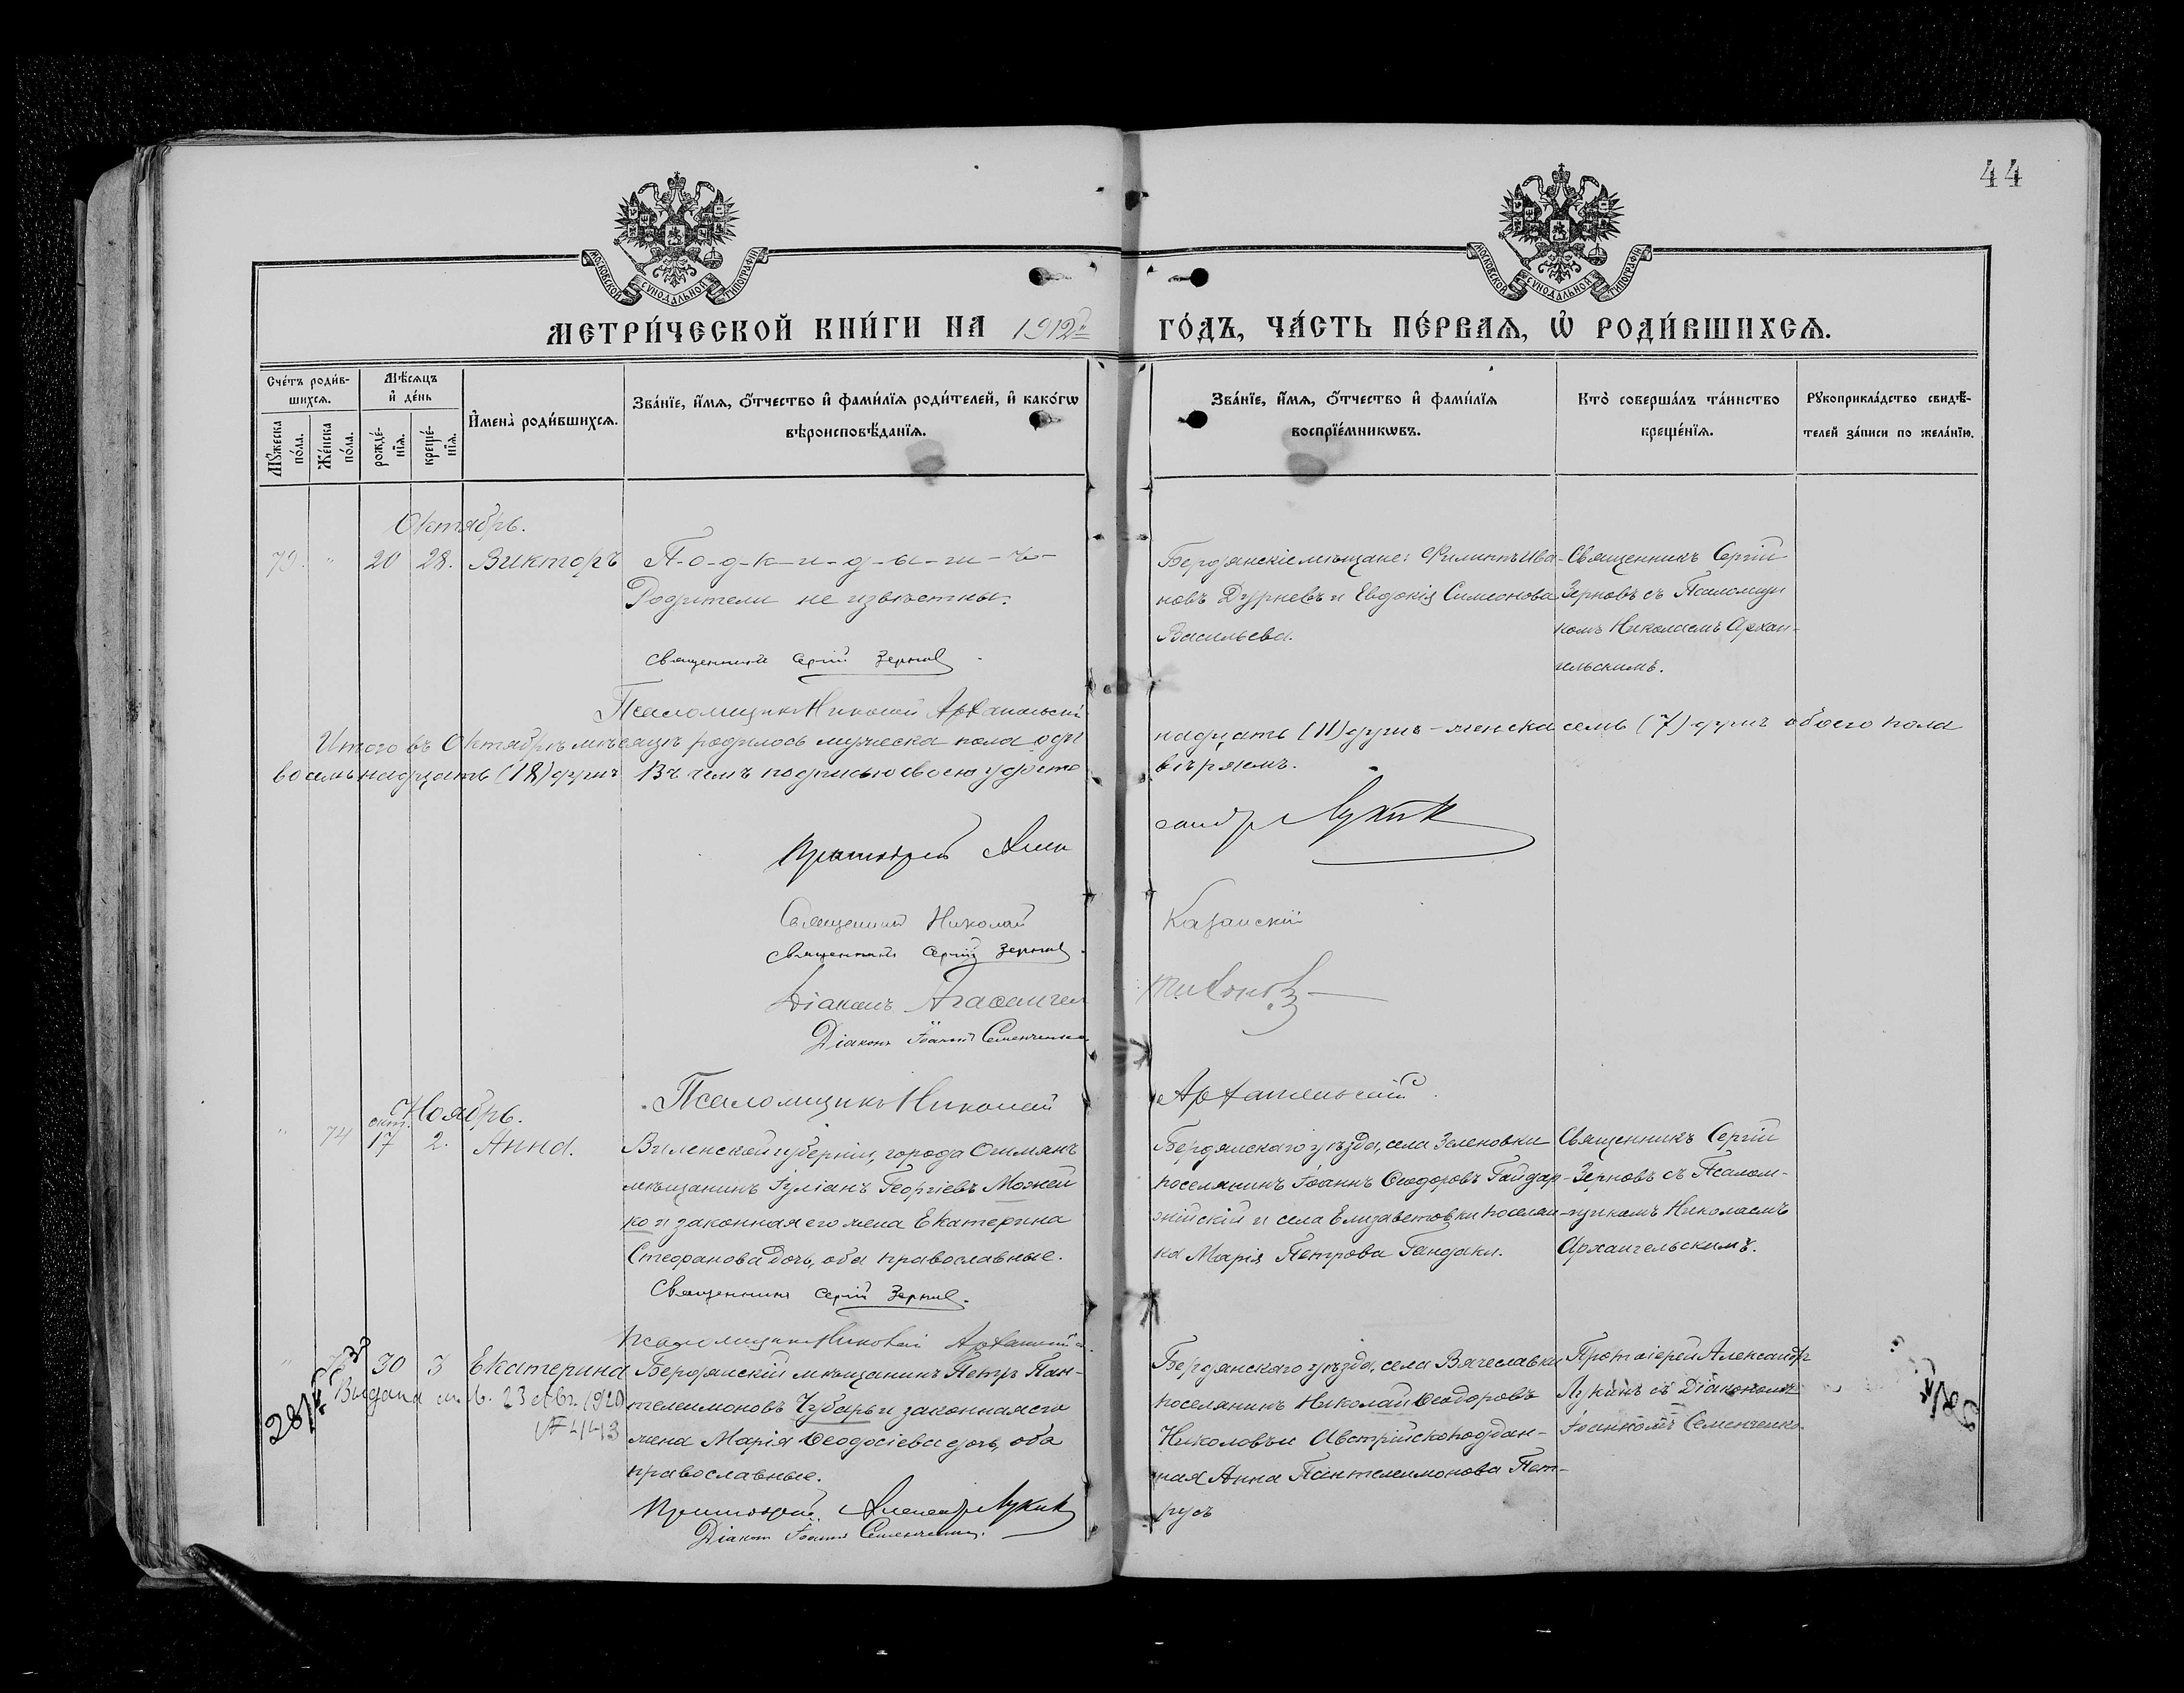 44
МОСКОВСКОЙ СѴНОДАЛЬНОЙ ТИПОГРАФІИ
МОСКОВСКОЙ СѴНОДАЛЬНОЙ ТИПОГРАФІИ
МЕТРИ́ЧЕСКОЙ КНИ́ГИ НА 1912й ГО́ДЪ, ЧА́СТЬ ПЕ́РВАЯ, Ѡ РОДИ́ВШИХСѦ.
Сче́тъ роди́в-
шихсѧ.
Мꙋ́жеска по́ла.
Же́нска по́ла.
Мѣ́сѧцъ
и де́нь
рожде́-нїѧ.
креще́-нїѧ.
И҆мена̀ роди́вшихсѧ.
Зва́нїе, и҆́мѧ, ѻ҆́тчество и҆ фами́лїѧ роди́телей, и҆ како́гѡ
вѣроисповѣ́данїѧ.
Зва́нїе, и҆́мѧ, ѻ҆́тчество и҆ фами́лїѧ
воспрїе́мникѡвъ.
Кто̀ соверша́лъ та́инство
креще́нїѧ.
Рꙋкоприкла́дство свидѣ́-
телей за́писи по жела́нїю.
Октябрь.
79. " 20 28. Викторъ П-о-д-к-и-д-ы-ш-ъ-
Родители не извѣстны.
Священникъ Сергій Зерновъ
Псаломщикъ Николай Архангельскій
Бердянскіе мѣщане: Филиппъ Ива-
новъ Дурневъ и Евдокія Симеонова
Васильева.
Священникъ Сергій
Зерновъ съ Псаломщи
комъ Николаемъ Архан-
гельскимъ.
Итого въ Октябрѣ мѣсяцѣ родилось мужеска пола оди надцать (11) душъ - женска семь (7) душъ обоего пола
восемьнадцать (18) душъ Въ чемъ подписью своею удосто вѣряемъ.
Протоіерей Александр Лукинъ
Священникъ Николай Казанскій
Священникъ Сергій Зерновъ
Діаконъ Агаѳангел Тихоновъ
Діаконъ Іоаннъ Семенченко
Псаломщикъ Николай Архангельскій
Ноябрь.
" 74 окт. 17 2. Анна.
Виленской губерніи, города Ошмянъ
мѣщанинъ Іуліанъ Георгіевъ Можей
ко и законная его жена Екатерина
Стефанова дочь, оба православные.
Священникъ Сергій Зерновъ.
Псаломщикъ Николай Архангельскій
Бердянскаго уѣзда, села Зеленовки
поселянинъ Іоаннъ Ѳеодоровъ Гайдар-
жійскій и села Елизаветовки поселян-
ка Марія Петрова Гандаки.
Священникъ Сергій
Зерновъ съ Псалом-
щикомъ Николаемъ
Архангельскимъ.
" 30 3 Екатерина
Выдана 1920
№ 4443
Бердянскій мѣщанинъ Петръ Пан-
телеимоновъ Чубарь и законная его
жена Марія Ѳеодосіева дочь, оба
православные.
Протоіерей Александръ Лукинъ
Діаконъ Іоаннъ Семенченко.
Бердянскаго уѣзда, села Вячеславки
поселянинъ Николай Ѳеодоровъ
Николовъ и Австрійскоподдан-
ная Анна Пантелеимонова Пет-
русь
Протоіерей Александръ
Лукинъ съ Діакономъ
Іоанномъ Семенченко.